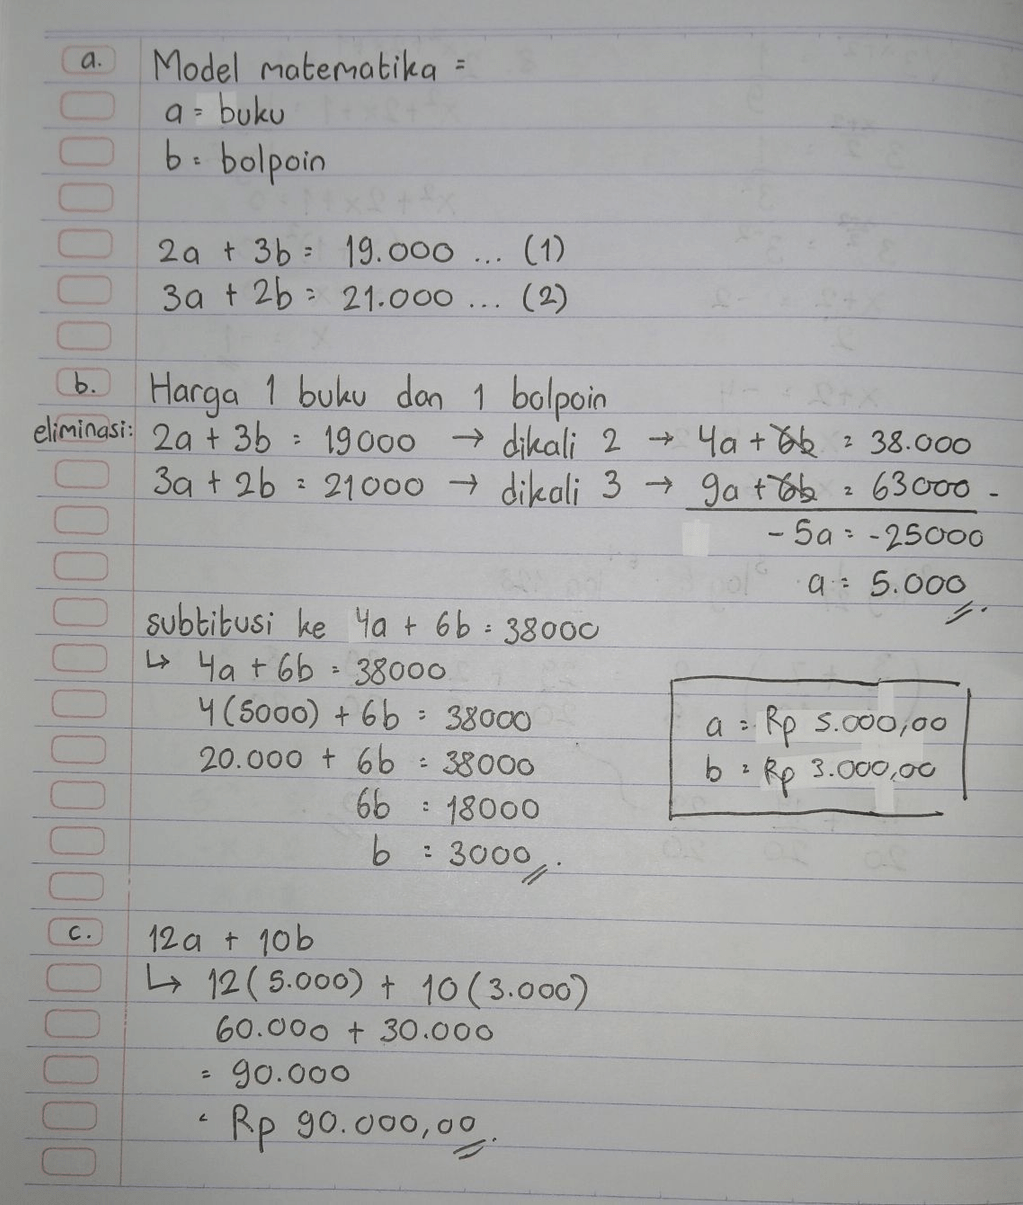 a. Model matematika =
a = buku
b = bolpoin
2a + 3b = 19.000 ... (1)
3a + 2b = 21.000 ... (2)
b. Harga 1 buku dan 1 bolpoin
eliminasi: 2a + 3b = 19000 → dikali 2 → 4a + 6b = 38.000
3a + 2b = 21000 → dikali 3 → 9a + 6b = 63000 -
- 5a = -25000
a = 5.000
subtitusi ke 4a + 6b = 38000
↳ 4a + 6b = 38000
4 (5000) + 6b = 38000
20.000 + 6b = 38000
6b = 18000
b = 3000
a = Rp 5.000,00
b = Rp 3.000,00
c. 12a + 10b
↳ 12 (5.000) + 10 (3.000)
60.000 + 30.000
= 90.000
= Rp 90.000,00